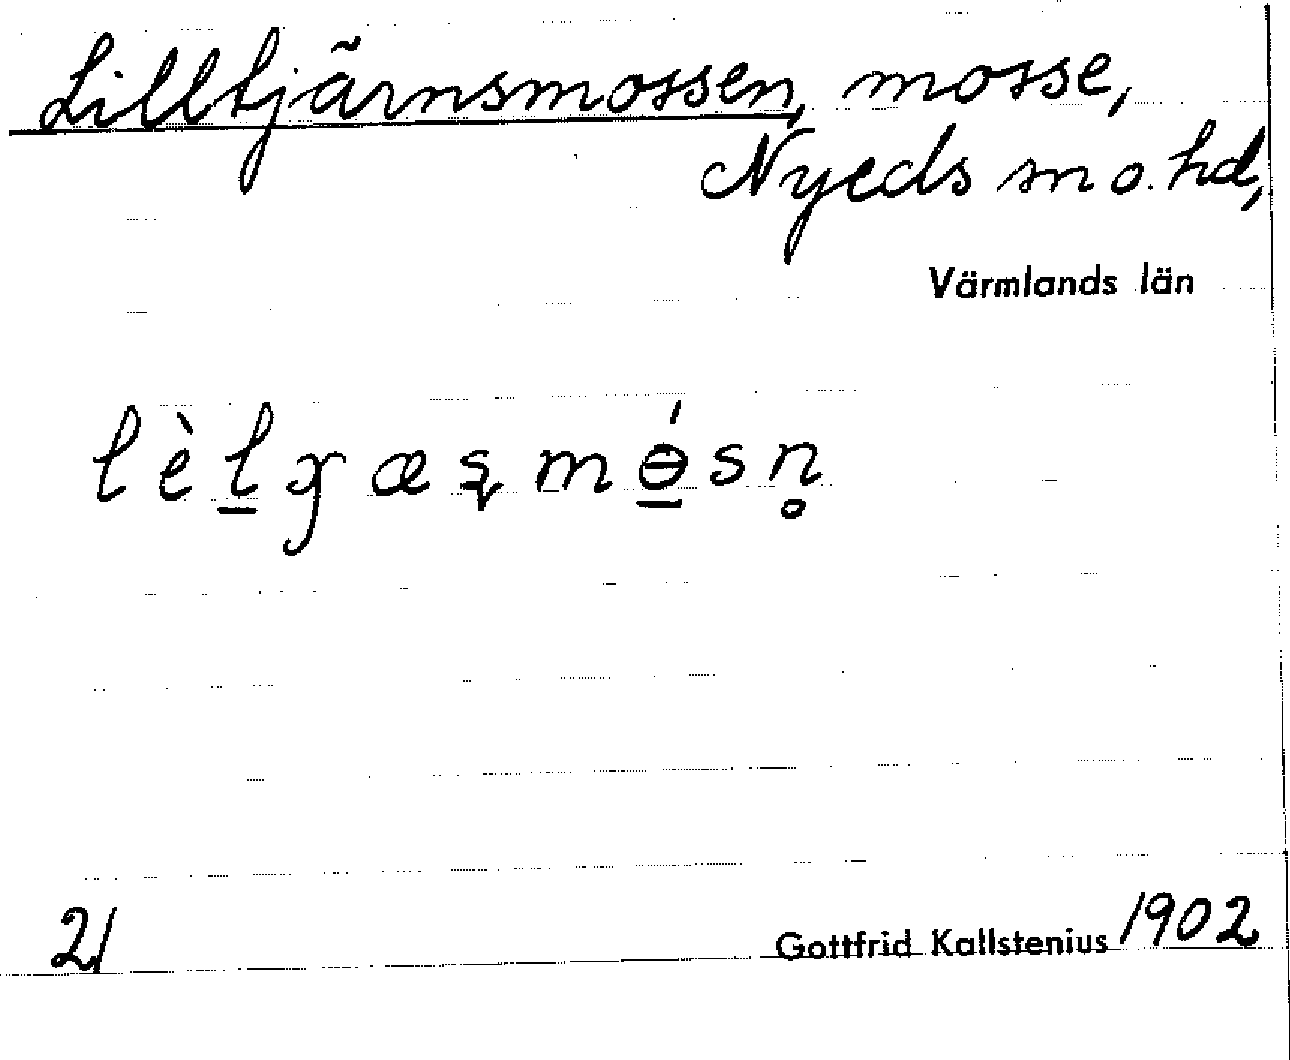 Lilltjärnsmossen, mosse,
Nyeds sn o. hd,
Värmlands län
lèl̲ɣæʂmɵ̲́sn̥
21
Gottfrid Kallstenius 1902